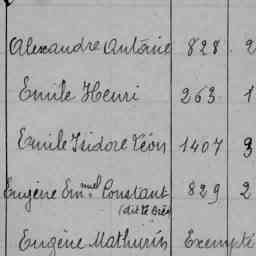 Alexandre Antoine 828 2
Emile Henri 263 1
Emile Isidore Léon 1407 3
Eugène Em.nuel Constant 829 2
(dit le
Eugène Mathurin Exempté